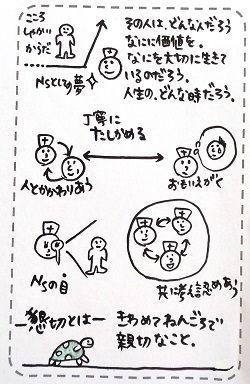 こころ
しゃかい
からだ
NSとしての夢
その人は、どんなんだろう
なにに価値を。
なにを大切に生きて
いるのだろう。
人生の、どんな時だろう。
丁寧に
たしかめる
人とかかわりあう
おもいえがく
NSの目
共に考え認めあう
懇切とは
きわめてねんごろで
親切なこと。